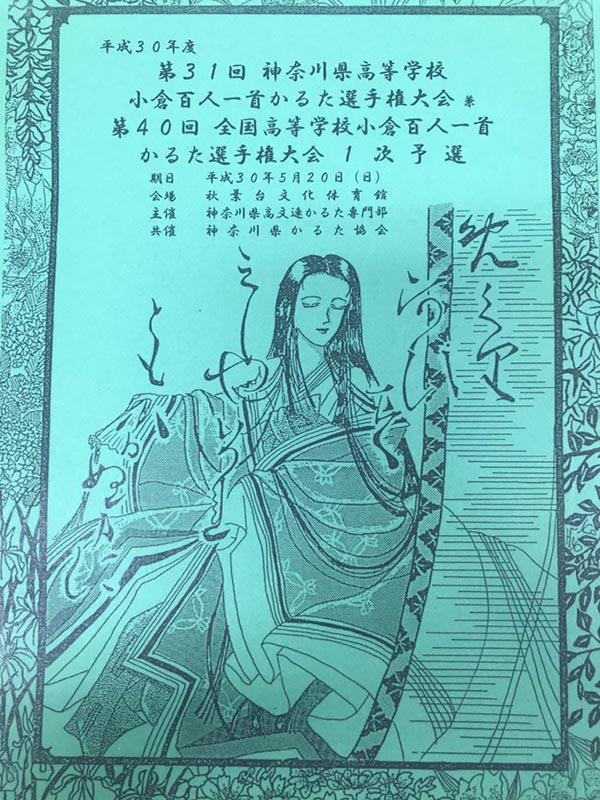 平成30年度
第31回 神奈川県高等学校
小倉百人一首かるた選手権大会 兼
第40回 全国高等学校小倉百人一首
かるた選手権大会 1次予選
期日 平成30年5月20日(日)
会場 秋葉台文化体育館
主催 神奈川県高文連かるた専門部
共催 神奈川県かるた協会